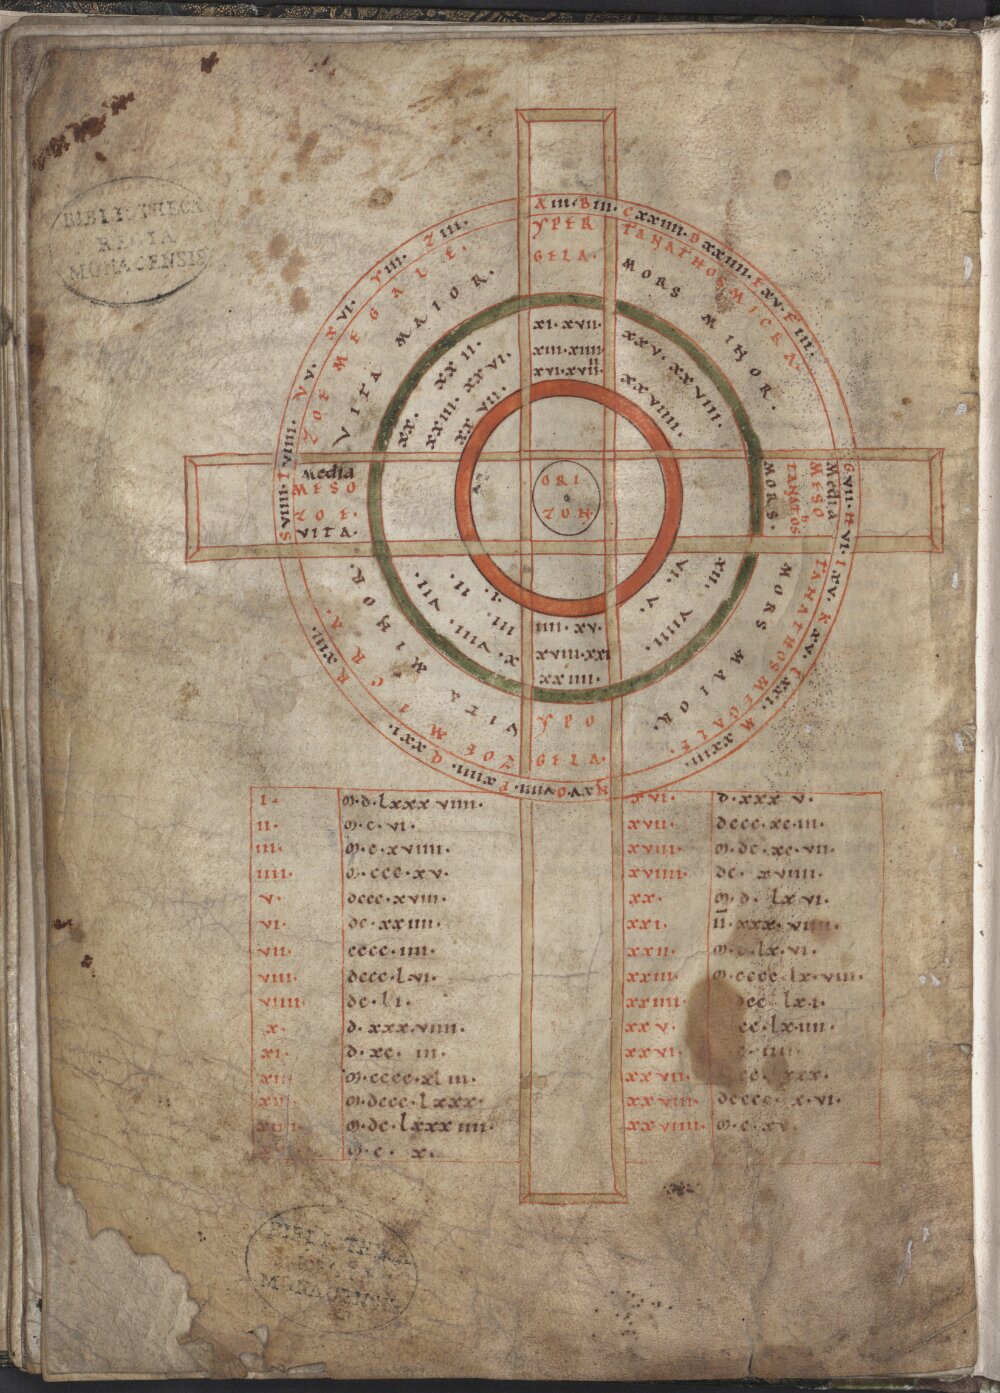 BIBLIOTHECA
REGIA
MONACENSIS
A III · B III · C XXIIII · D XXIIII · E XV · F III ·
G VII · H VI · I XV · K XV · L XXI · M XXIII ·
N XV · O VIIII · P XIIII · Q XXI · R XIII ·
S VIIII · T VIIII · V V · X VI · Y III · Z III ·
YPER
GELA ·
TANATHOS MICRA ·
MORS MINOR ·
ZOE MEGALE ·
VITA MAIOR ·
XI · XVII ·
XIII · XIIII
XVI · XVII
XXV · XXVIII ·
XXVIIII ·
XX · XXII ·
XXIII · XXVI ·
XXVII ·
Media
MESO
ZOE ·
VITA ·
ORI
ZON ·
Media
MESO
TANATOS
MORS ·
TANATHOS MEGALE ·
MORS MAIOR ·
ZOE MICRA ·
VITA MINOR ·
XII ·
VI · V · VIIII ·
I · II · VII ·
III ·
X · VIII ·
IIII · XV ·
XVIII · XXI
XXIIII ·
YPO
GELA ·
I · m · d · lxxxviiii ·
II · m · c · vi ·
III · m · c · xviiii ·
IIII · m · ccc · xv ·
V · dccc · xviii ·
VI · dc · xxiiii ·
VII · cccc · iiii ·
VIII · dccc · lvi ·
VIIII · dc · li ·
X · d · xxxviiii ·
XI · d · xc · iii ·
XII · m · cccc · xliii ·
m · dccc · lxxx ·
m · dc · lxxxiiii ·
m · c · x ·
XVI · d · xxxv ·
XVII · dccc · xc · iii ·
XVIII · m · dc · xc · vii ·
XVIIII · dc · xviiii ·
XX · m · d · lxvi ·
XXI · ii · xxx · viiii ·
XXII · m · c · lx · vi ·
XXIII · m · cccc · lx · viii ·
XXIIII · lxi ·
XXV · lxiiii ·
XXVI · iiii ·
XXVII · xxx ·
XXVIII · dcccc · x · vi ·
XXVIIII · m · c · xv ·